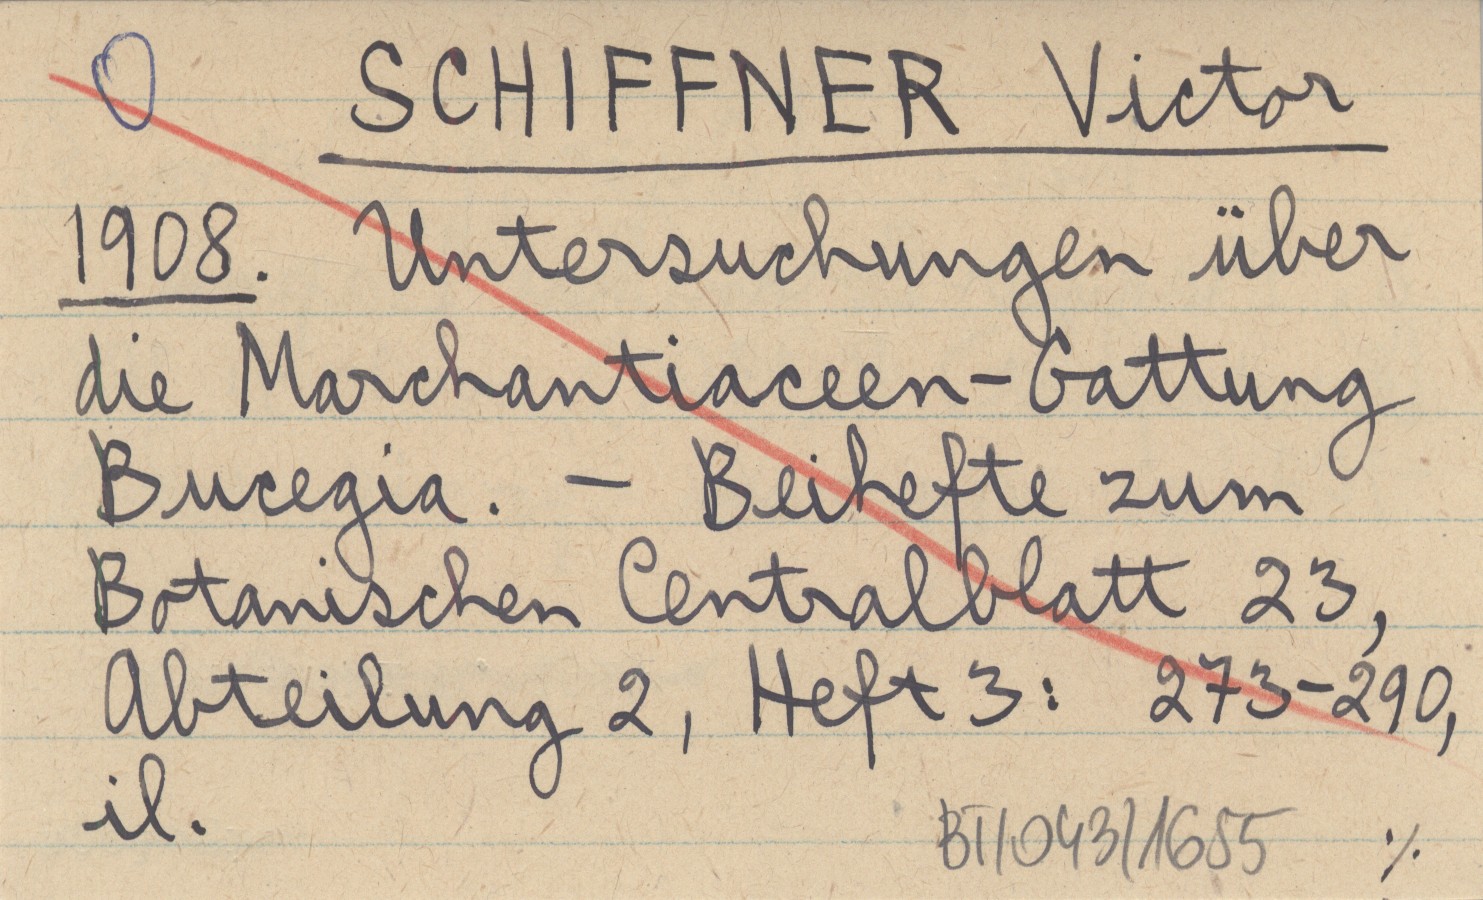 SCHIFFNER Victor
1908. Untersuchungen über
die Marchantiaceen-Gattung
Bucegia. - Beihefte zum
Botanischen Centralblatt 23,
Abteilung 2, Heft 3: 273-290,
il.
BT/043/1685 ./.